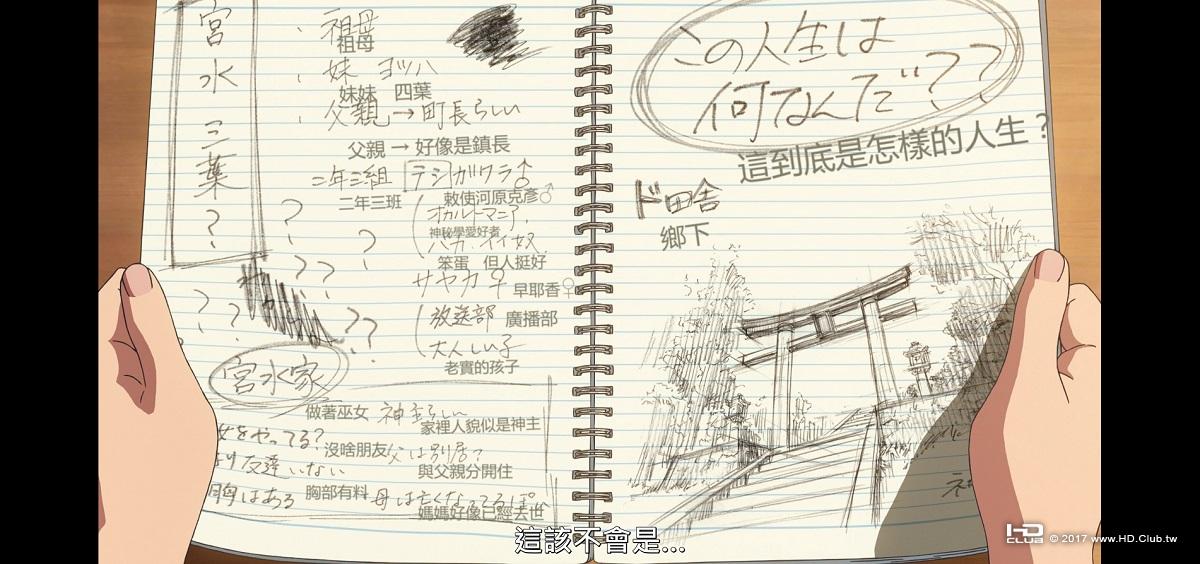 宮水三葉?
祖母
祖母
妹 ヨツハ
妹妹 四葉
父親→町長らしい
父親→好像是鎮長
二年三組 テシガワラ♂
二年三班 敕使河原克彥♂
オカルトマニア,
神秘學愛好者
バカ.イイ奴
笨蛋 但人挺好
サヤカ♀
早耶香♀
放送部 廣播部
大人しい子
老實的孩子
? ? ? ? ? ? ? ?
宮水家
做著巫女 神主らしい
家裡人貌似是神主
女をやってる?
沒啥朋友 父は別居?
り友達いない
與父親分開住
胸はある 胸部有料 母は亡くなってるぽい
媽媽好像已經去世
この人生は
何なんだ??
這到底是怎樣的人生?
ド田舎
鄉下
這該不會是...
HD CLUB © 2017 www.HD.Club.tw